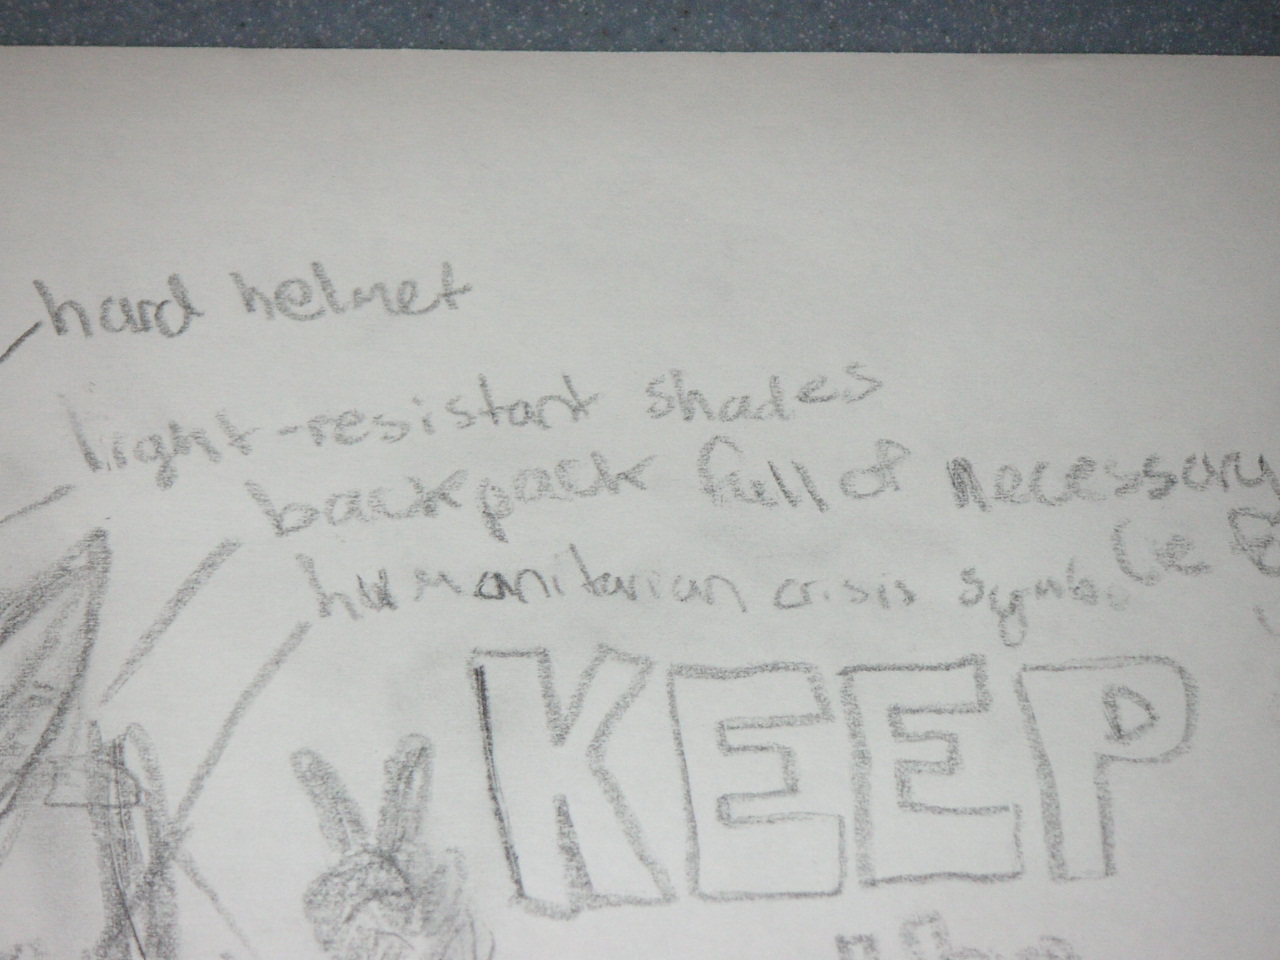 hard helmet
light-resistant shades
backpack full of necessary
(ie
humanitarian crisis
KEEP